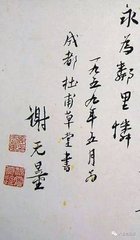 永為鄰里憐
一九五九年五月為
成都杜甫草堂書
謝无量